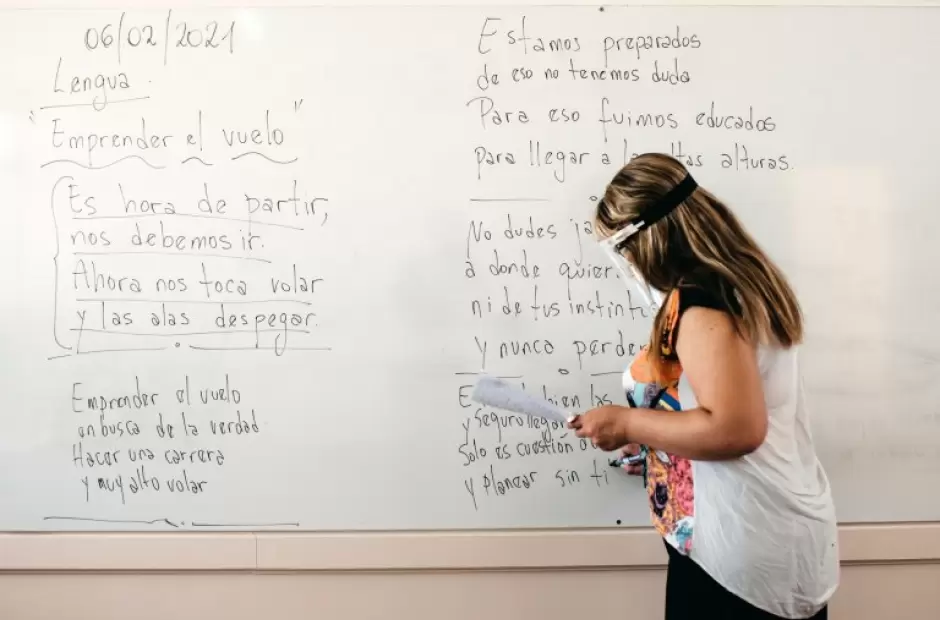 06/02/2021
Lengua.
"Emprender el vuelo"
Es hora de partir,
nos debemos ir.
Ahora nos toca volar
y las alas despegar.
Emprender el vuelo
en busca de la verdad
Hacer una carrera
y muy alto volar
Estamos preparados
de eso no tenemos duda
Para eso fuimos educados
para llegar a alturas.
No dudes
a donde
ni de tus
y nunca
bien las
y seguro
Solo es cuestión
y planear sin